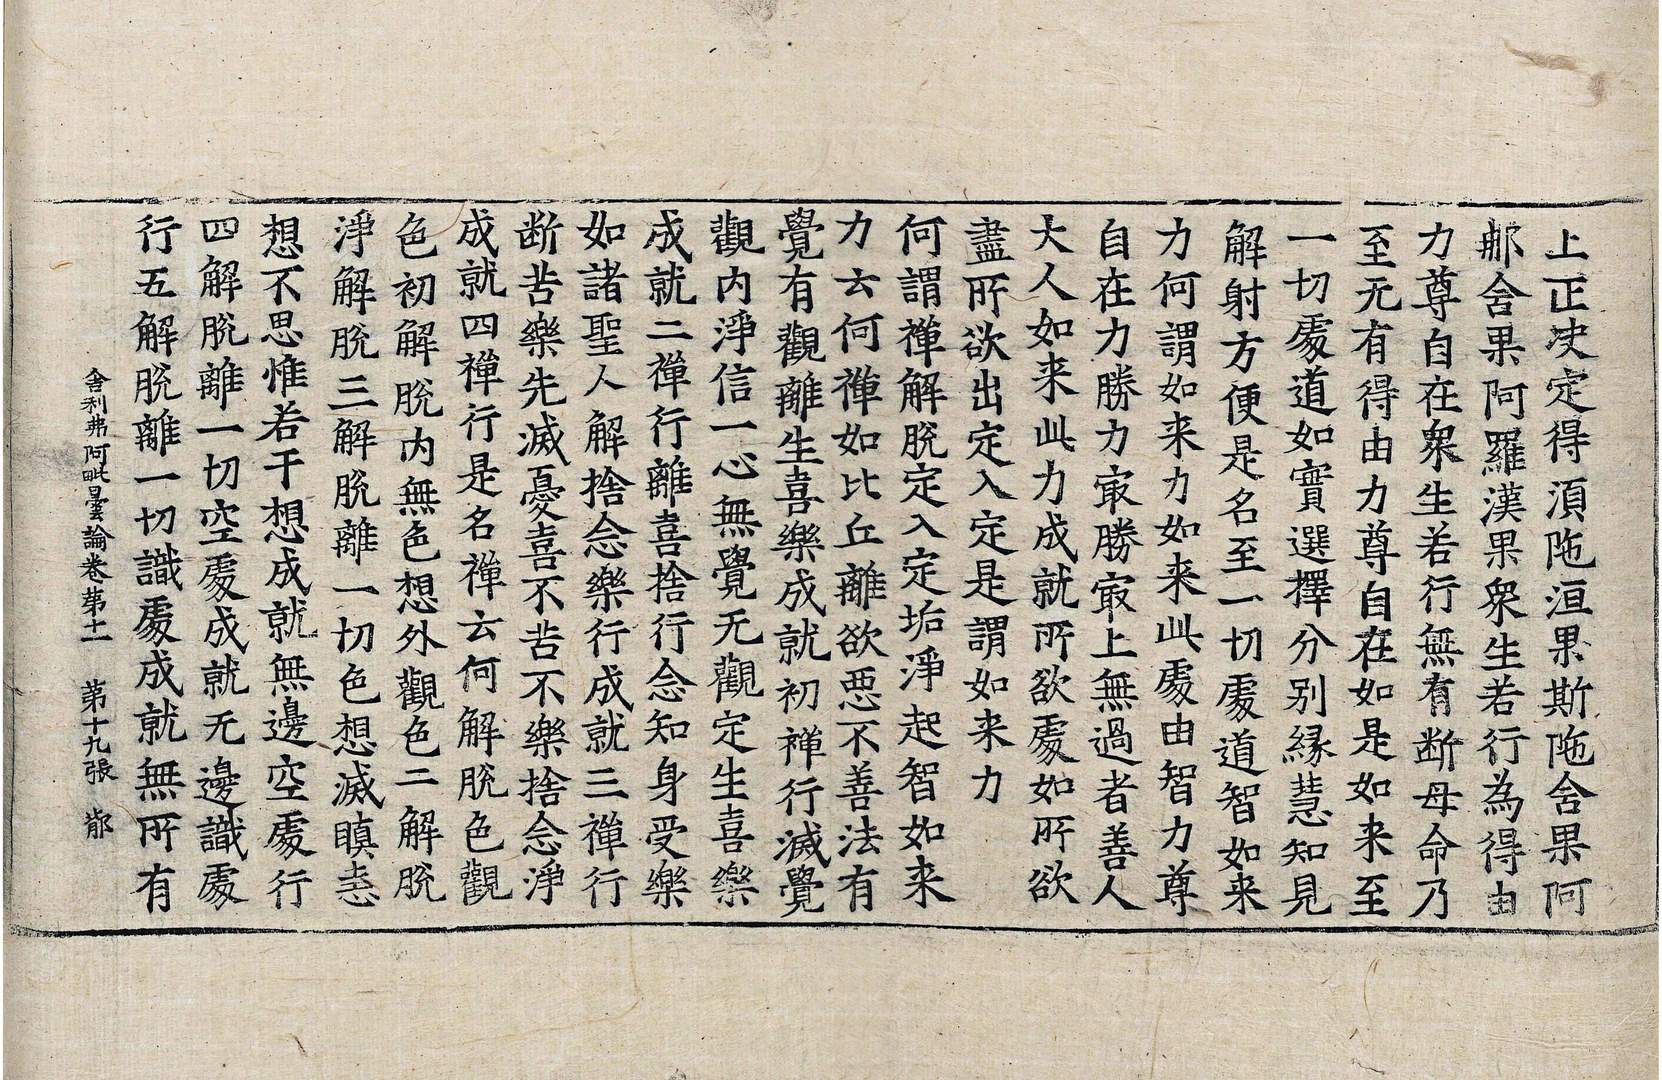 上正决定得湏陁洹果斯陁含果阿
那含果阿羅漢果衆生若行為得由
力尊自在衆生若行無有断母命乃
至无有得由力尊自在如是如来至
一切處道如實選擇分别縁慧知見
解射方便是名至一切處道智如来
力何謂如来力如来此處由智力尊
自在力勝力㝡勝㝡上無過者善人
大人如来此力成就所欲處如所欲
盡所欲出定入定是謂如来力
何謂禪解脫定入定垢淨起智如来
力云何禪如比丘離欲惡不善法有
覺有觀離生喜樂成就初禪行滅覺
觀内淨信一心無覺无觀定生喜樂
成就二禪行離喜捨行念知身受樂
如諸聖人解捨念樂行成就三禪行
断苦樂先滅憂喜不苦不樂捨念淨
成就四禪行是名禪云何解脫色觀
色初解脫内無色想外觀色二解脫
淨解脫三解脫離一切色想滅瞋恚
想不思惟若干想成就無邊空處行
四解脫離一切空處成就无邊識處
行五解脫離一切識處成就無所有
舍利弗阿毗曇論卷苐十一 苐十九張 鄗